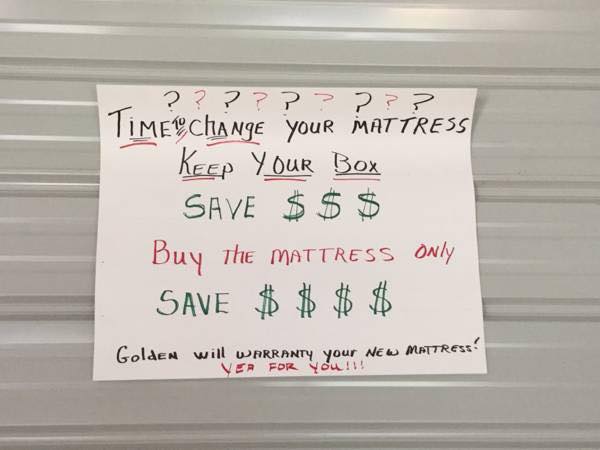 ? ? ? ? ? ? ? ? ?
TIME to ChANgE YOUR MATTRESS
KEEP YOUR BOX
SAVE $ $ $
Buy THE MATTRESS ONly
SAVE $ $ $ $
GoldEN will WARRANTY your NEW MATTRESS!
YEA FOR YOU!!!